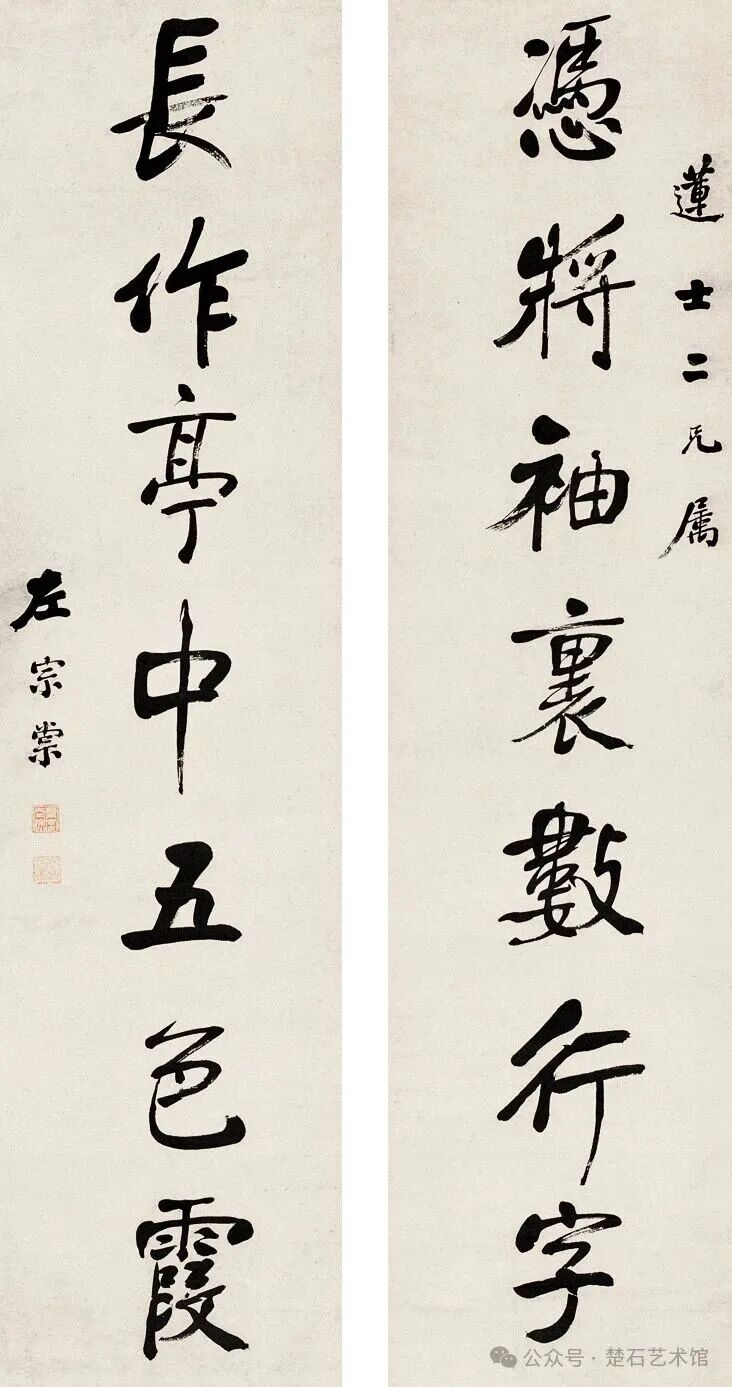 蓮士二兄属
憑將袖裏數行字
長作亭中五色霞
左宗棠
公众号·楚石艺术馆